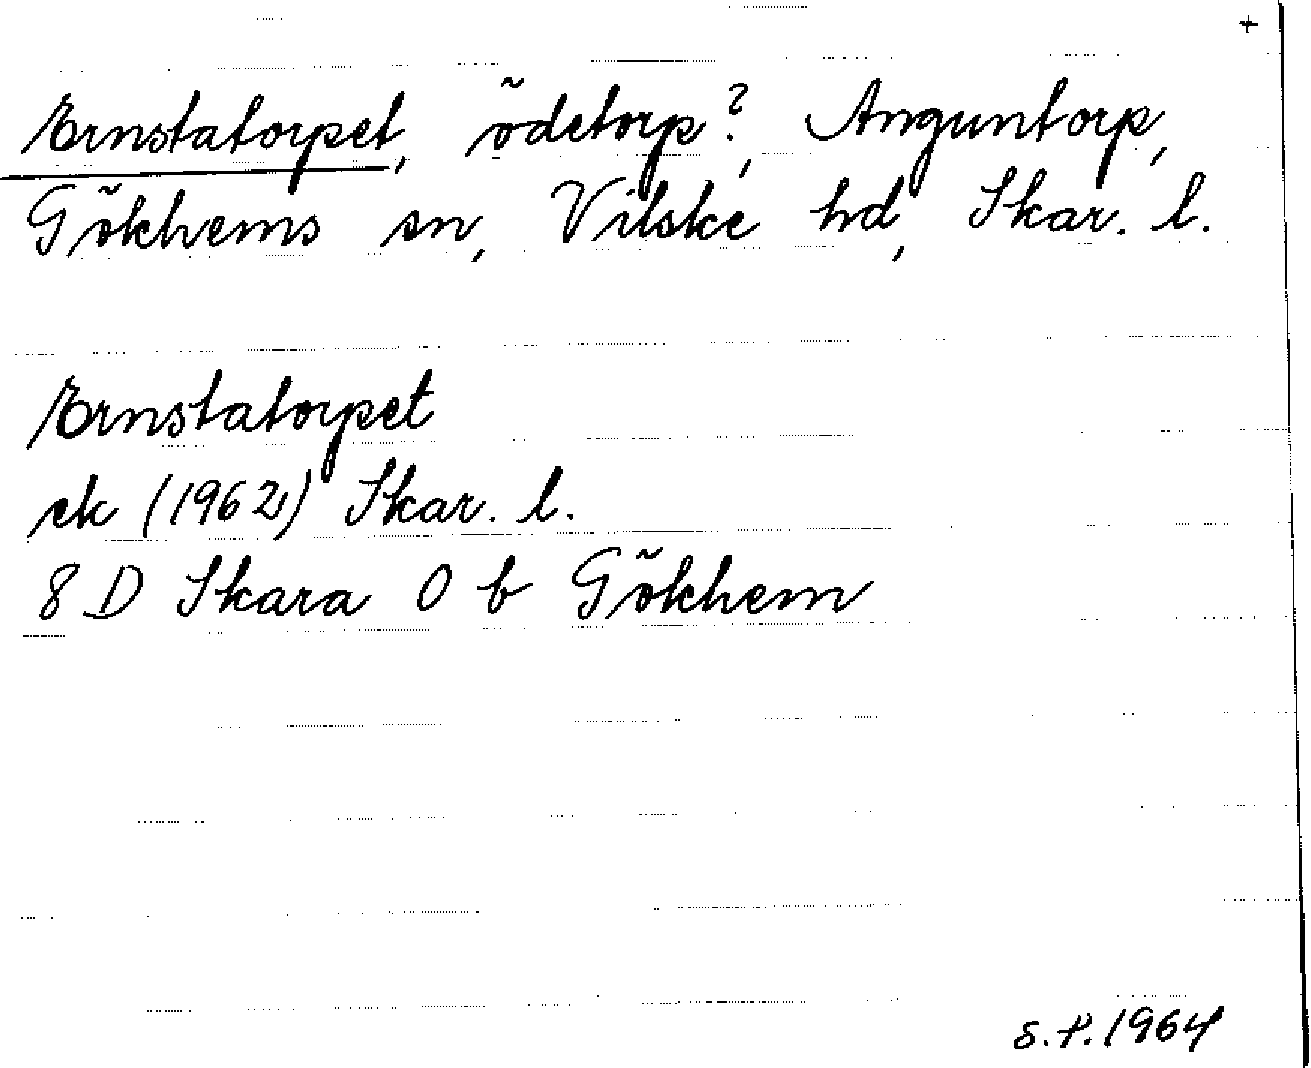 +
Ernstatorpet, ödetorp?, Anguntorp,
Gökhems sn, Vilske hd, Skar. l.
Ernstatorpet
ek (1962) Skar. l.
8 D Skara 0 b Gökhem
S.P. 1964